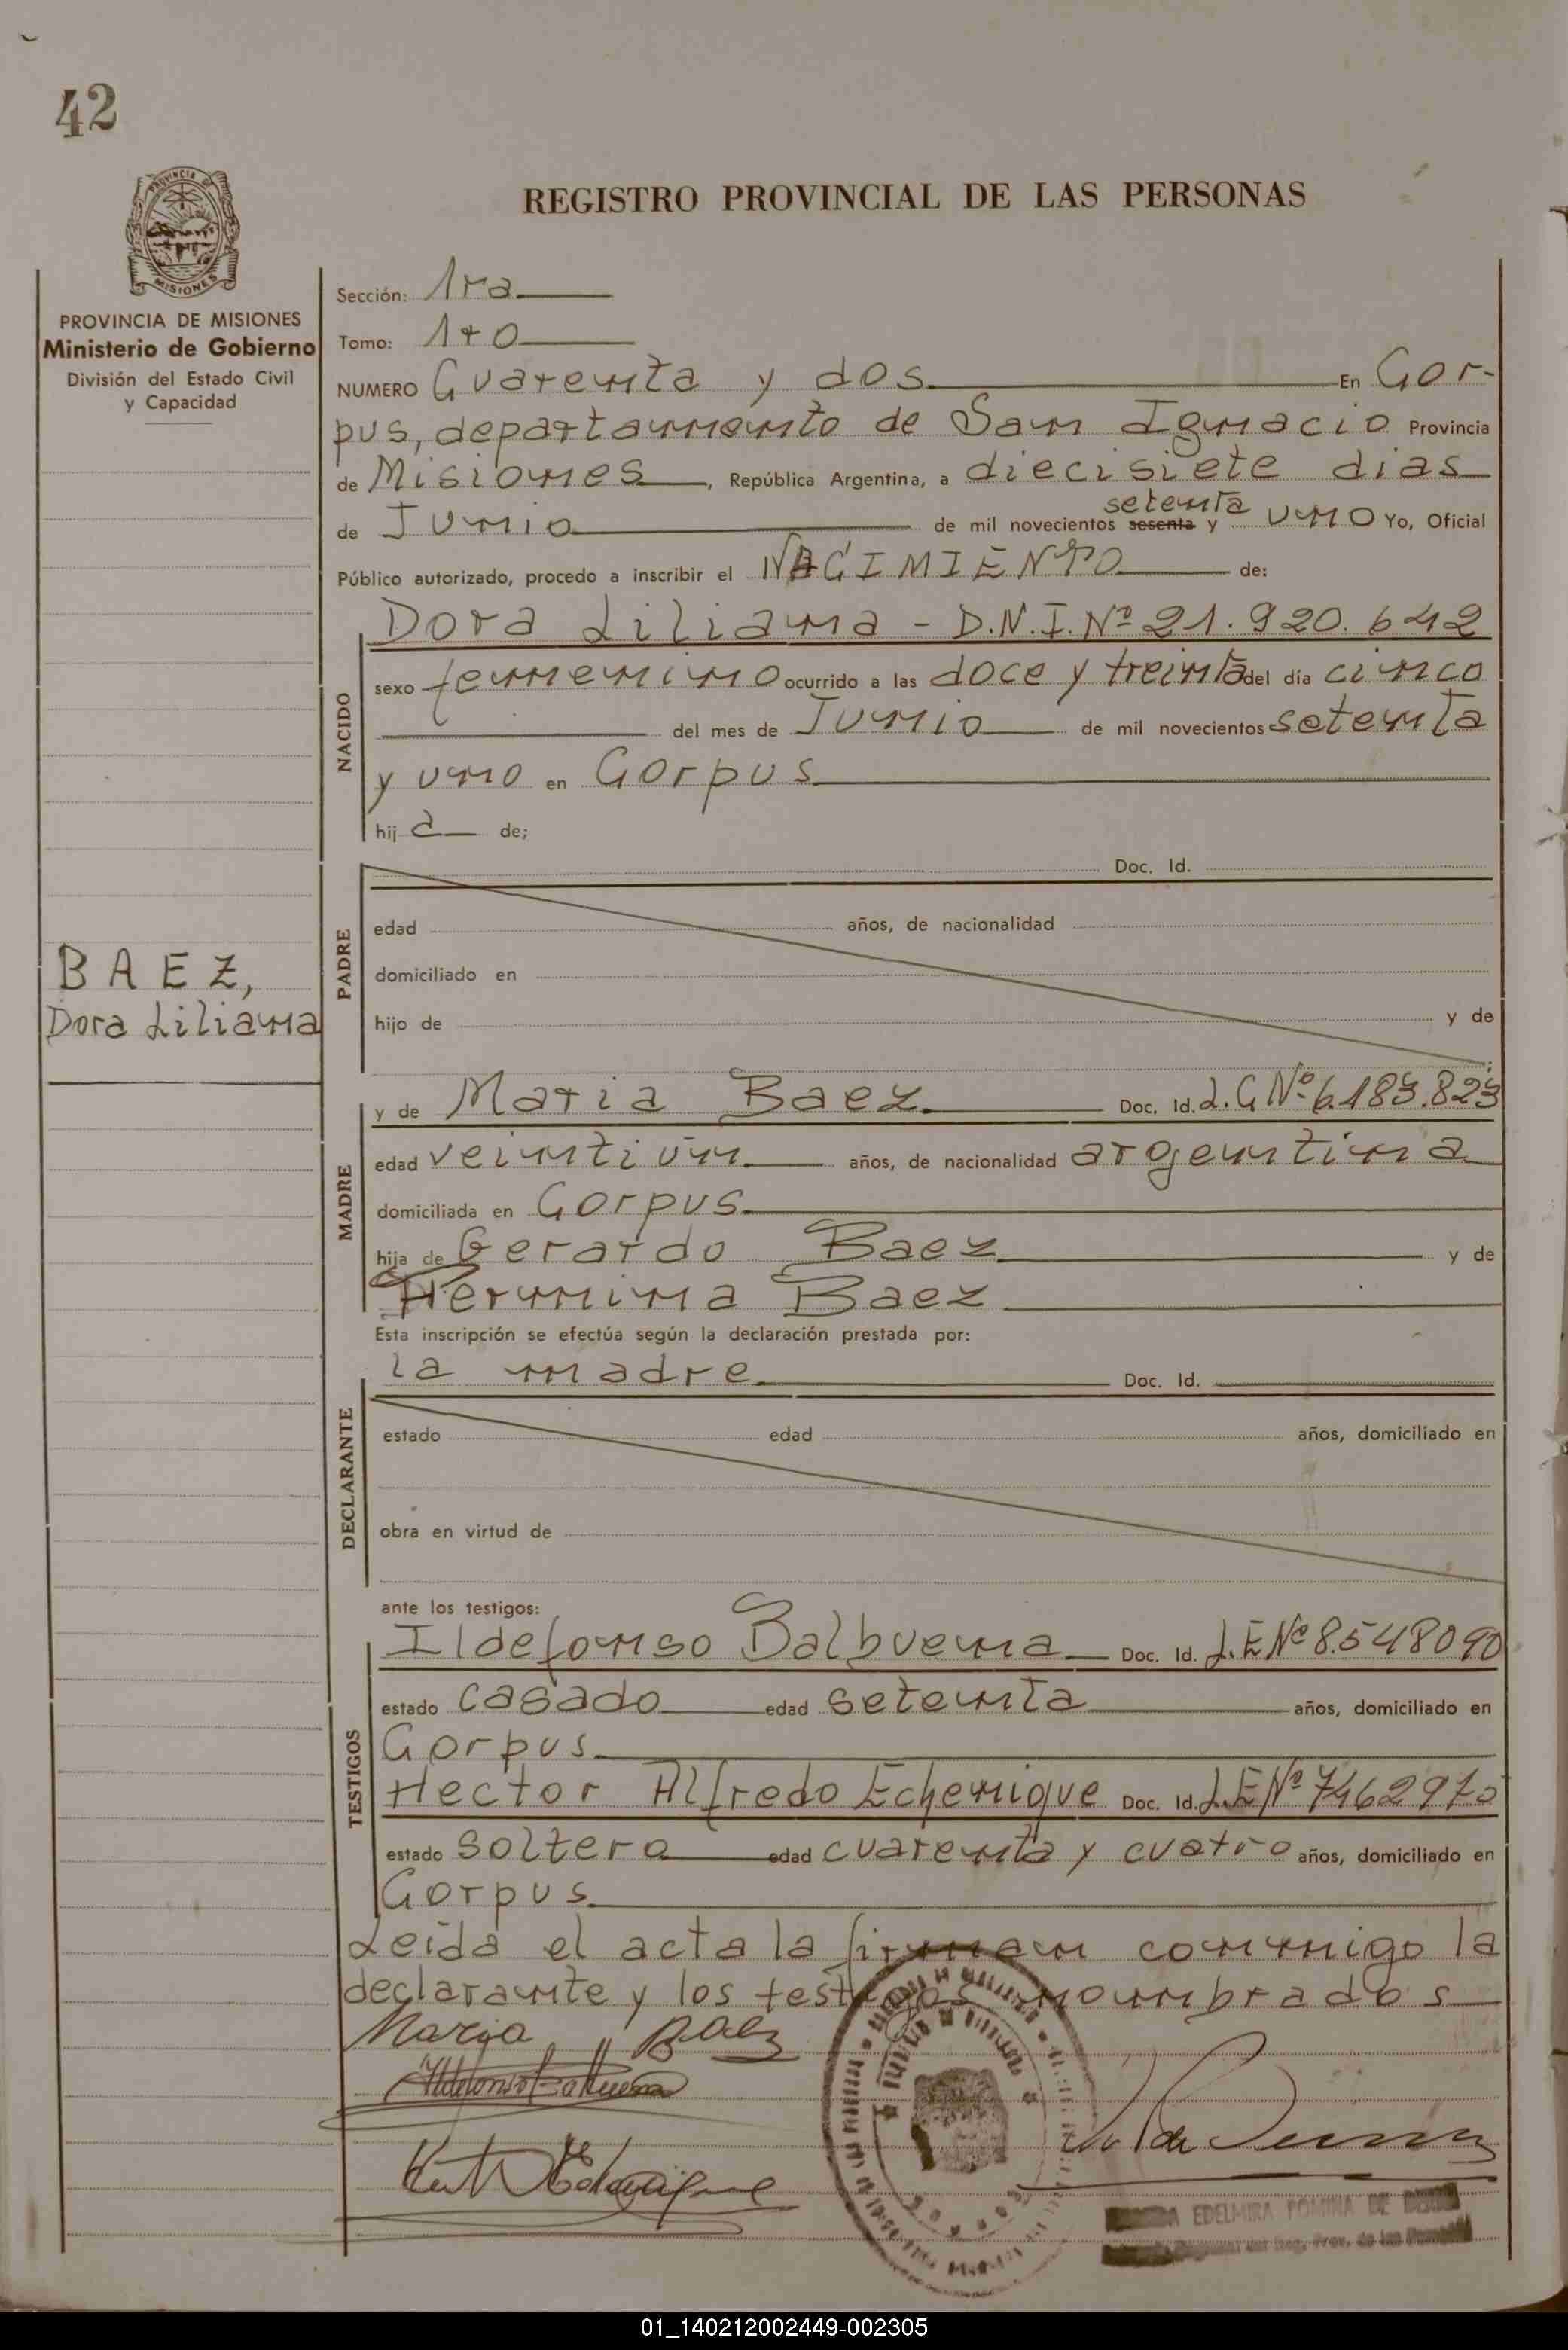 42
REGISTRO PROVINCIAL DE LAS PERSONAS
PROVINCIA DE MISIONES
Ministerio de Gobierno
División del Estado Civil
y Capacidad
BAEZ,
Dora Liliana
Sección: 1ra
Tomo: 1ro
NUMERO Cuarenta y dos En Cor-
pus, departamento de San Ignacio Provincia
de Misiones, República Argentina, a diecisiete dias
setenta
de Junio de mil novecientos sesenta y uno Yo, Oficial
Público autorizado, procedo a inscribir el NACIMIENTO de:
NACIDO
Dora Liliana - D.N.I.Nº 21.920.642
sexo femenino ocurrido a las doce y treinta del día cinco
del mes de Junio de mil novecientos setenta
y uno en Corpus
hij a de;
PADRE
Doc. Id.
edad años, de nacionalidad
domiciliado en
hijo de y de
MADRE
y de Maria Baez Doc. Id. L.C Nº 6.183.823
edad veintiún años, de nacionalidad argentina
domiciliada en Corpus
hija de Gerardo Baez y de
Hermina Baez
Esta inscripción se efectúa según la declaración prestada por:
DECLARANTE
la madre Doc. Id.
estado edad años, domiciliado en
obra en virtud de
ante los testigos:
TESTIGOS
Ildefonso Balbuena Doc. Id. L.E Nº 8.548090
estado casado edad setenta años, domiciliado en
Corpus
Hector Alfredo Echenique Doc. Id. L.E Nº
estado soltero edad cuarenta y cuatro años, domiciliado en
Corpus
Leída el acta la firman conmigo la
declarante y los testigos nombrados
Maria Baez
Ildefonso Balbuena
EDELMIRA ROMINA DE
Reg. Prov. de las
01_140212002449-002305